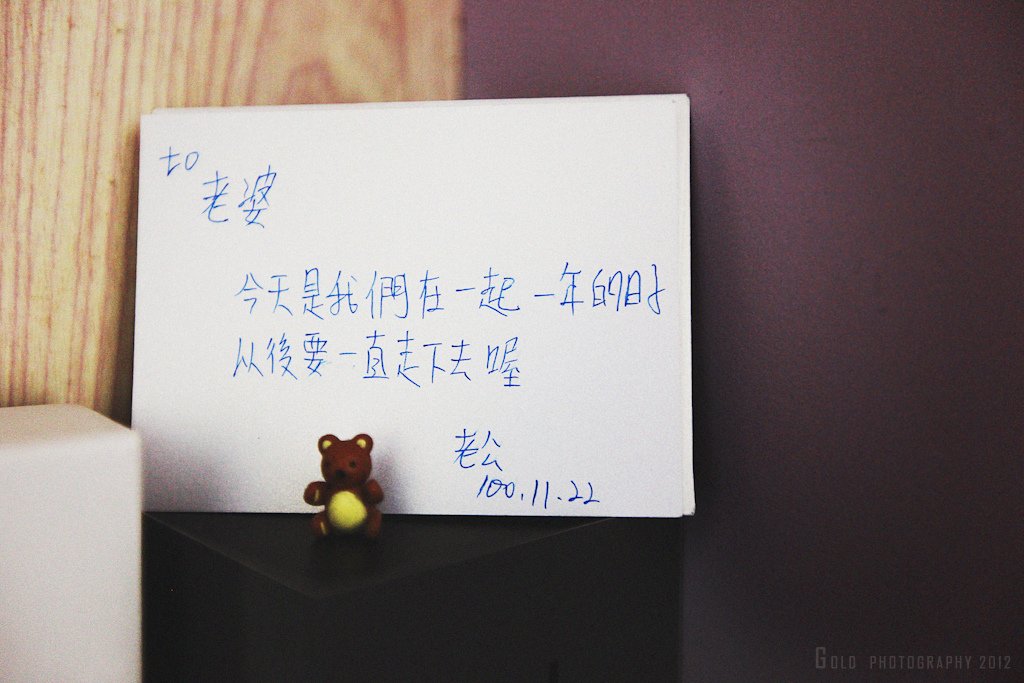 to
老婆
今天是我們在一起一年的日子
从後要一直走下去喔
老公
100.11.22
GOLO PHOTOGRAPHY 2012